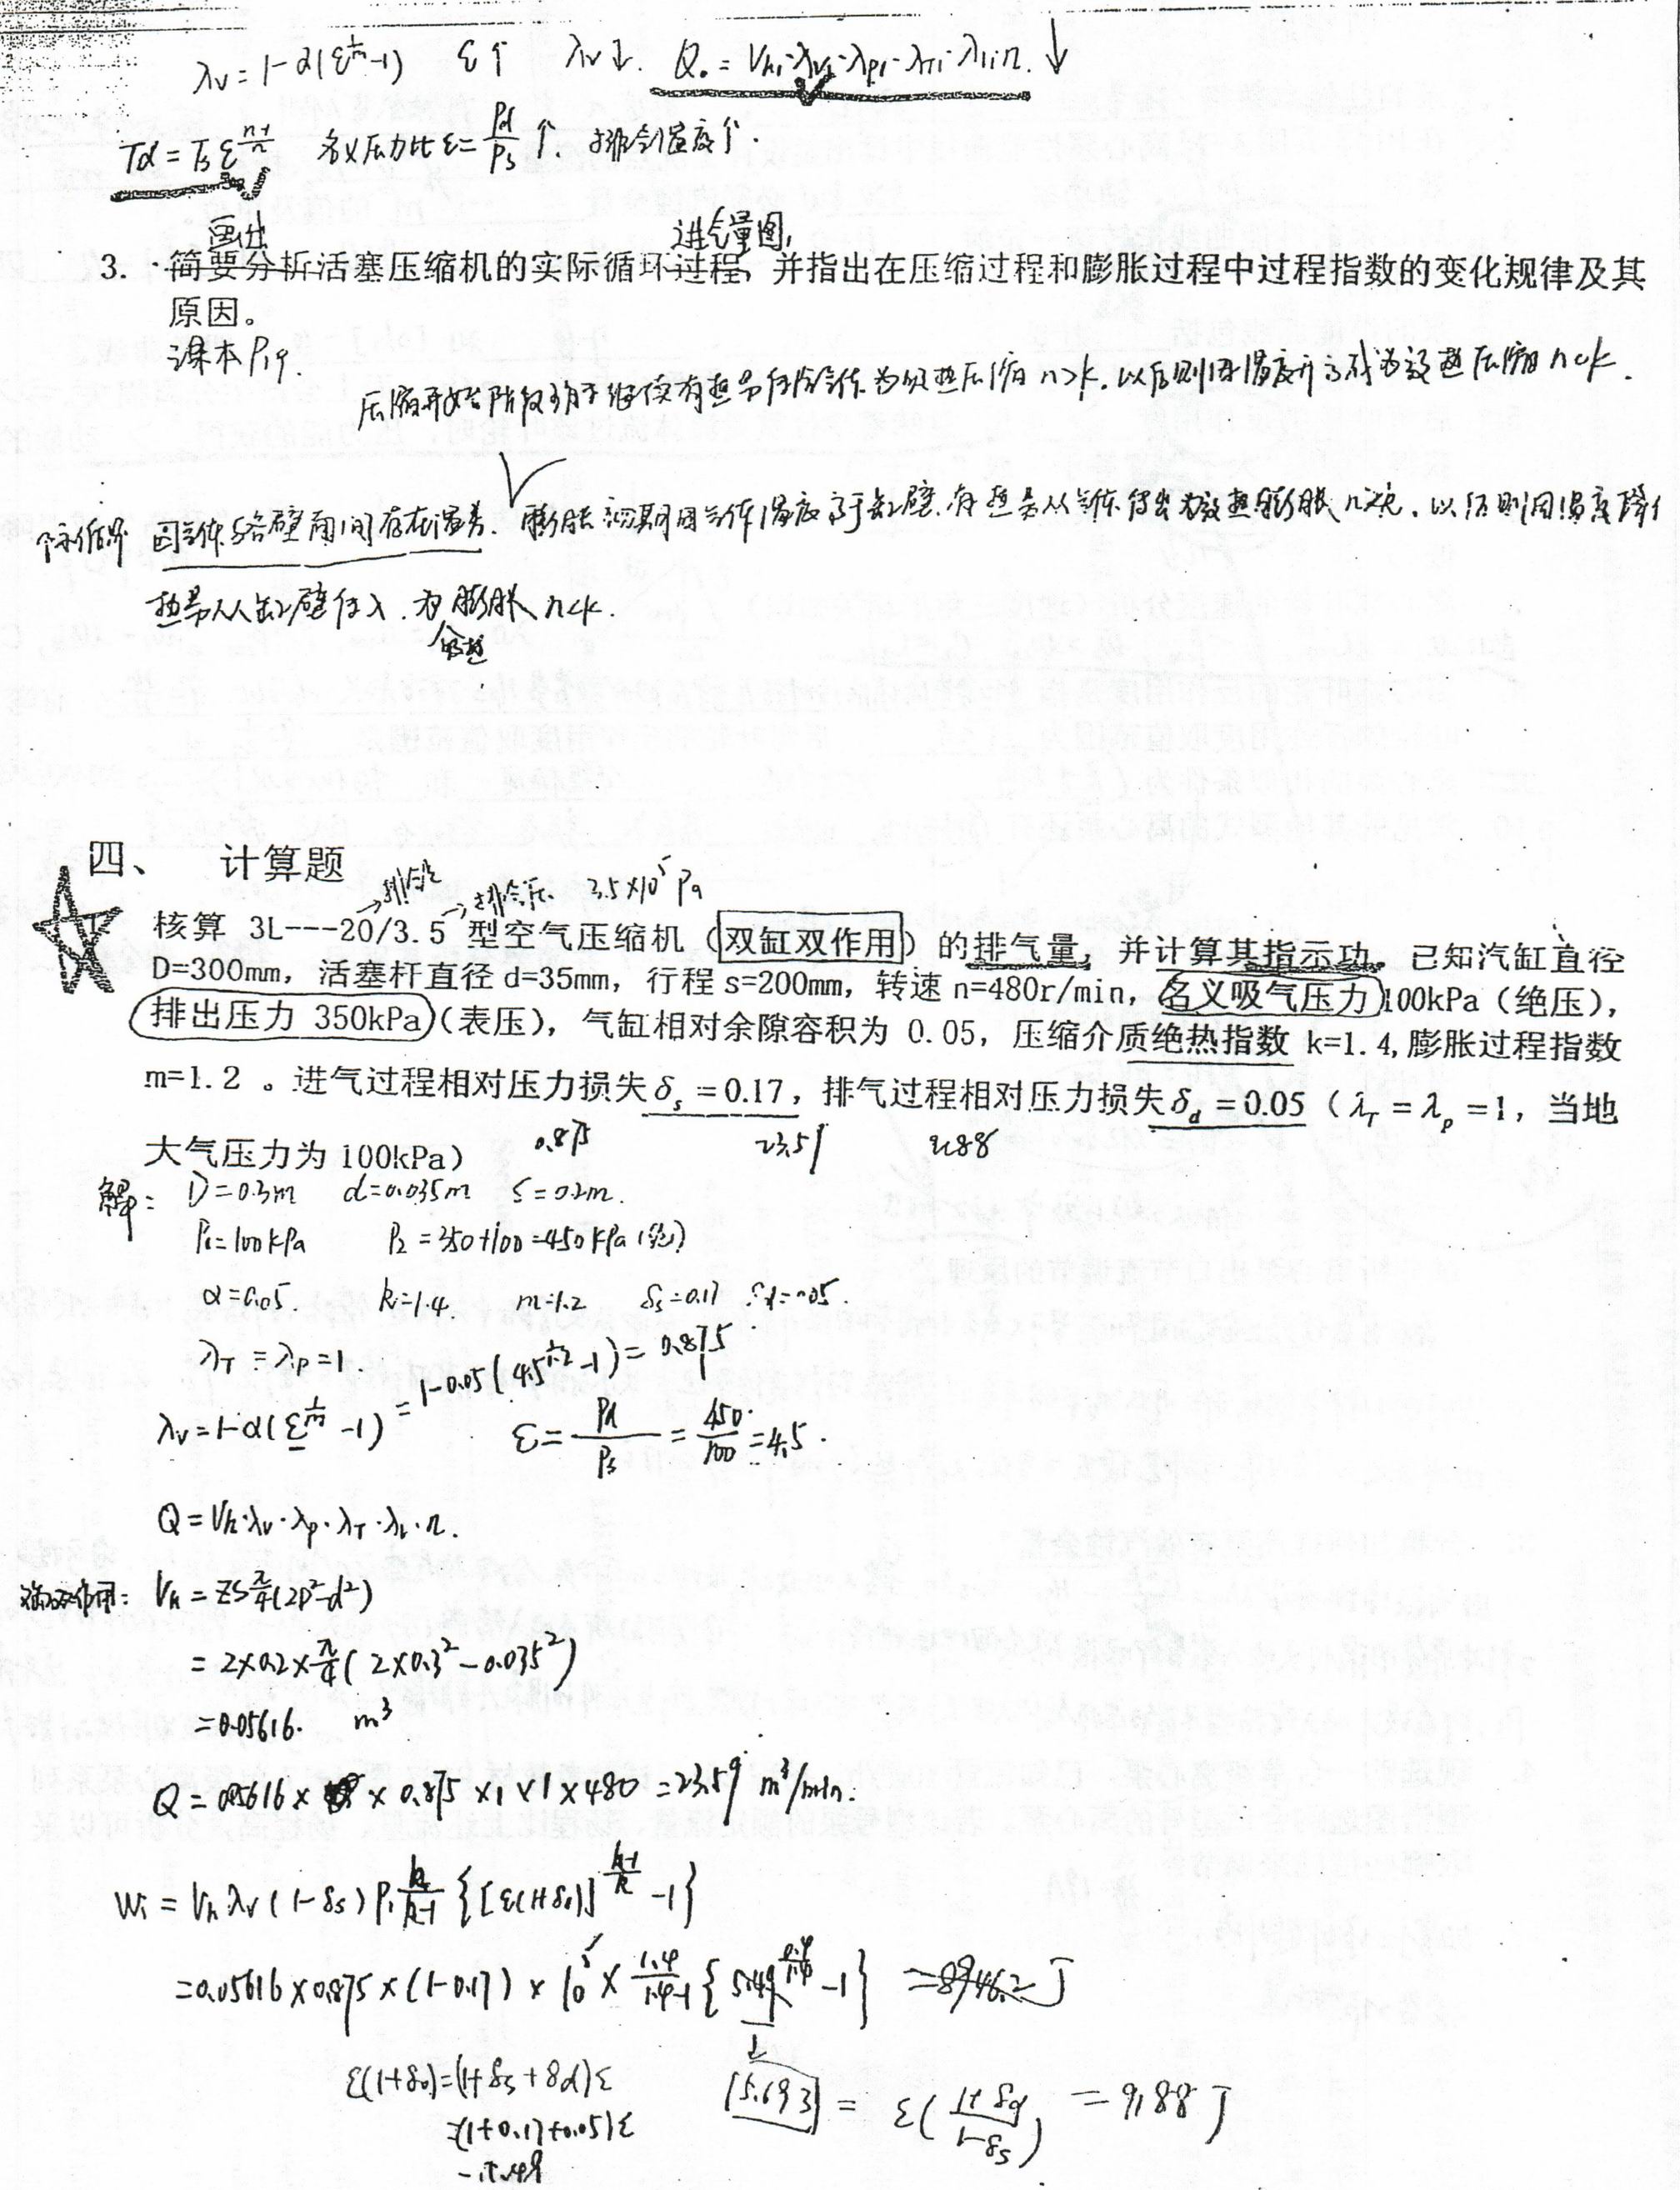 λv = 1-α(ε^{1/m}-1) ε↑ λv↓. Q₀ = Vh₁·λv₁·λp₁·λT₁·λl₁·n. ↓
Td = Ts ε^{(n-1)/n} 名义压力比 ε = Pd/Ps ↑. 排气温度↑.
画出 进气量图,
3. 简要分析活塞压缩机的实际循环过程,并指出在压缩过程和膨胀过程中过程指数的变化规律及其
原因。
课本 P19.
压缩开始阶段 有热量传给气体为吸热压缩 n>k. 以后则 温度升高成为放热压缩 n<k.
因气体与各壁面间存在温差. 膨胀初期因气体温度高于缸壁. 有热量从气体传出为放热膨胀 以后则因温度降低
热量从缸壁传入. 为膨胀 n<k.
吸热
四、 计算题
排气量 排气压 3.5×10⁵ Pa
核算 3L---20/3.5 型空气压缩机(双缸双作用)的排气量,并计算其指示功。已知汽缸直径
D=300mm,活塞杆直径 d=35mm,行程 s=200mm,转速 n=480r/min,名义吸气压力 100kPa(绝压),
排出压力 350kPa(表压),气缸相对余隙容积为 0.05,压缩介质绝热指数 k=1.4,膨胀过程指数
m=1.2 。进气过程相对压力损失 δs = 0.17,排气过程相对压力损失 δd = 0.05(λT = λp = 1,当地
大气压力为 100kPa)
0.875 23.59 9.88
解: D=0.3m d=0.035m s=0.2m.
P₁=100kPa P₂=350+100=450kPa(绝)
α=0.05. k=1.4. m=1.2 δs=0.17 δd=0.05.
λT = λp = 1.
λv = 1-α(ε^{1/m} -1) = 1-0.05(4.5^{1/1.2} -1) = 0.875
ε = Pd/Ps = 450/100 = 4.5.
Q = Vh·λv·λp·λT·λl·n.
双作用: Vh = ZS π/4 (2D²-d²)
= 2×0.2× π/4 (2×0.3²-0.035²)
= 0.05616. m³
Q = 0.05616 × 0.875 ×1×1×480 = 23.59 m³/min.
Wi = Vh λv (1-δs) P₁ k/(k-1) {[ε(1+δ₀)]^{(k-1)/k} -1}
= 0.05616×0.875×(1-0.17)×10⁵× 1.4/(1.4-1) {5.49^{0.4/1.4} -1} = 8946.2 J
ε(1+δ₀)=(1+δs+δd)ε
=(1+0.17+0.05)ε
=5.49
[5.693] = ε((1+δd)/(1-δs)) = 9.88 J